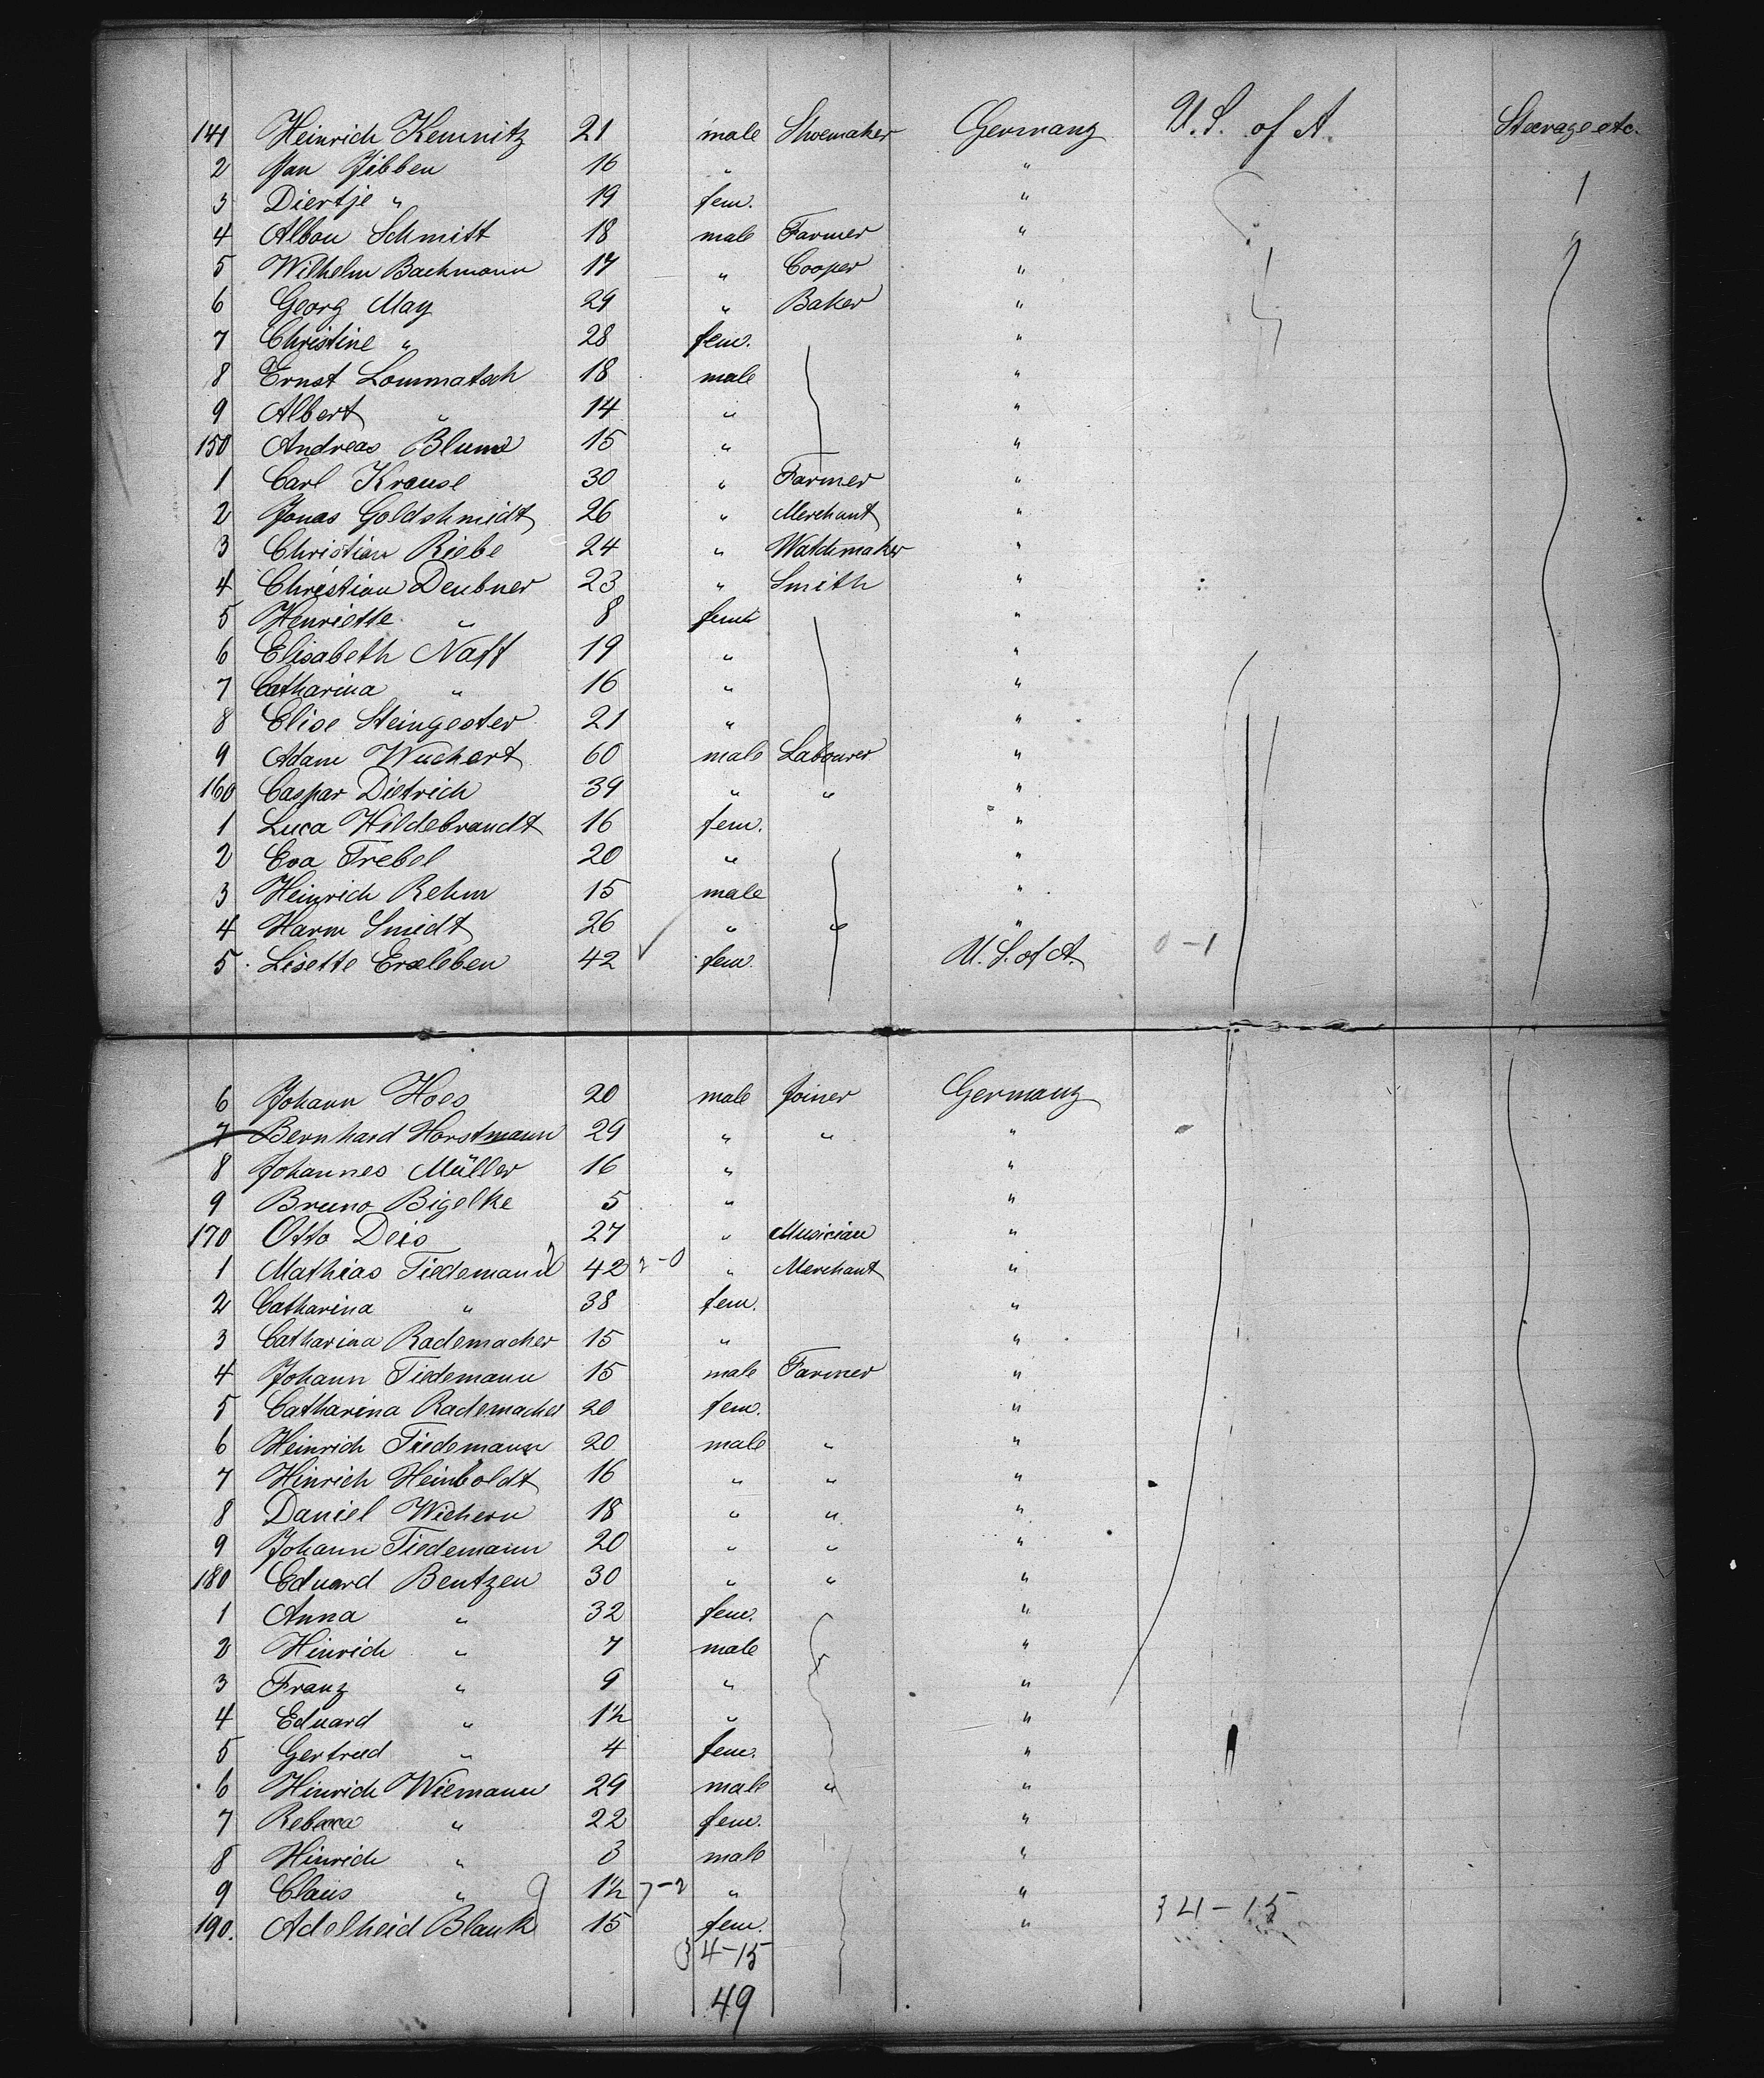 141 Heinrich Kemnitz 21 male Shoemaker Germany U.S. of A. Steerage etc.
2 Jan Jibben 16 " "
3 Diertje " 19 fem. "
4 Alban Schmitt 18 male Farmer "
5 Wilhelm Bachmann 17 " Cooper "
6 Georg May 29 " Baker "
7 Christine " 28 fem. "
8 Ernst Lommatsch 18 male "
9 Albert " 14 " "
150 Andreas Blume 15 " "
1 Carl Krause 30 " Farmer "
2 Jonas Goldshmidt 26 " Merchant "
3 Christian Riebe 24 " Watchmaker "
4 Christian Deubner 23 " Smith "
5 Henriette " 8 fem. "
6 Elisabeth Naff 19 " "
7 Catharina " 16 " "
8 Elise Steingester 21 " "
9 Adam Wuchert 60 male Labourer "
160 Caspar Dietrich 39 " " "
1 Luca Hildebrandt 16 fem. "
2 Eva Trebel 20 " "
3 Heinrich Rehm 15 male "
4 Harm Smidt 26 " " "
5 Lisette Erxleben 42 fem. U.S. of A. 0-1
6 Johann Hoes 20 male Joiner Germany
7 Bernhard Horstmann 29 " " "
8 Johannes Müller 16 " "
9 Bruno Bigelke 5 " "
170 Otto Deis 27 " Musician "
1 Mathias Tiedemann 42 2-0 " Merchant "
2 Catharina " 38 fem. "
3 Catharina Rademacher 15 " "
4 Johann Tiedemann 15 male Farmer "
5 Catharina Rademacher 20 fem. "
6 Heinrich Tiedemann 20 male " "
7 Hinrich Heinboldt 16 " " "
8 Daniel Wichern 18 " " "
9 Johann Tiedemann 20 " " "
180 Eduard Bentzen 30 " " "
1 Anna " 32 fem. "
2 Hinrich " 7 male "
3 Franz " 9 " "
4 Eduard " 1½ " "
5 Gertrud " 4 fem. "
6 Hinrich Wiemann 29 male " "
7 Rebecca " 22 fem. "
8 Hinrich " 3 male "
9 Claus " 1½ 7-2 " "
190. Adelheid Blank 15 fem. " 34-15
34-15
49